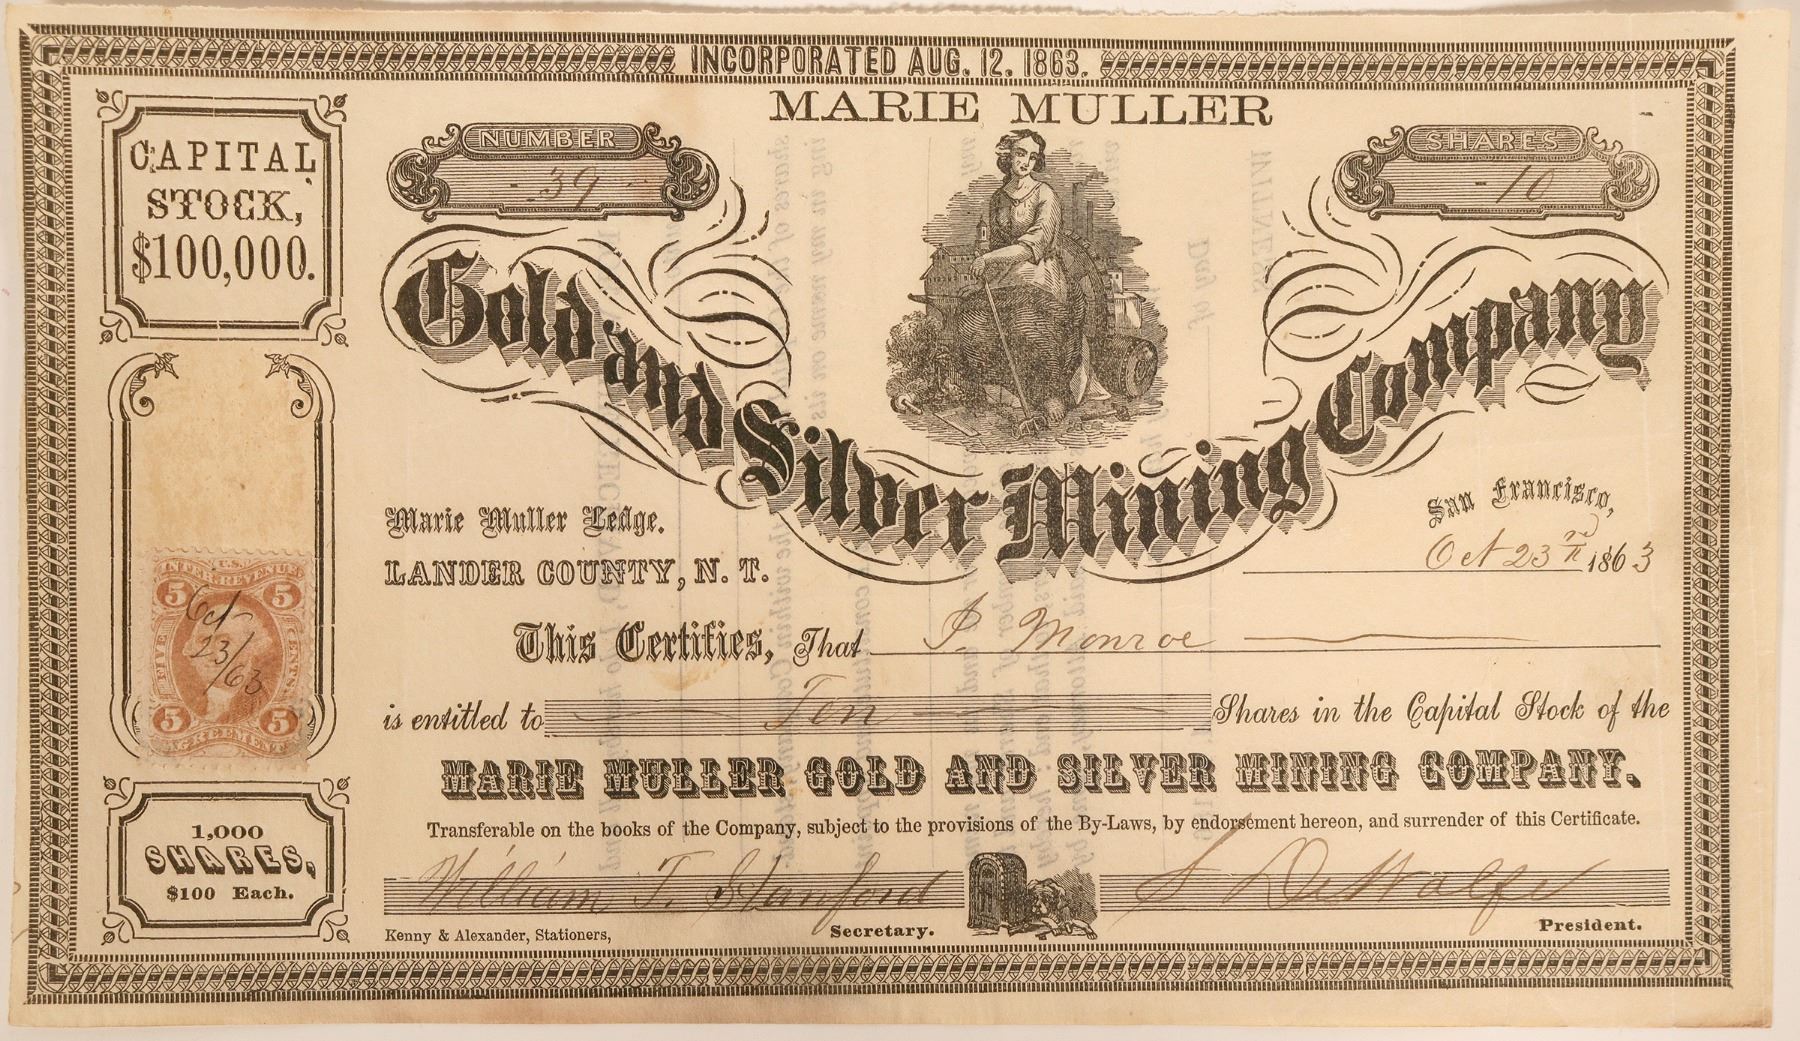 INCORPORATED AUG. 12. 1863.
MARIE MULLER
CAPITAL
STOCK,
$100,000.
NUMBER
39
SHARES
10
Gold and Silver Mining Company
Marie Muller Ledge.
LANDER COUNTY, N. T.
San Francisco,
Oct 23rd 1863
This Certifies, That J. Monroe
is entitled to Ten Shares in the Capital Stock of the
MARIE MULLER GOLD AND SILVER MINING COMPANY.
Transferable on the books of the Company, subject to the provisions of the By-Laws, by endorsement hereon, and surrender of this Certificate.
U.S.
INTER. REVENUE
5 5
Oct
23/63
FIVE CENTS
5 5
AGREEMENT
1,000
SHARES,
$100 Each.
William T. Stanford
Secretary.
S DeWolfe
President.
Kenny & Alexander, Stationers,